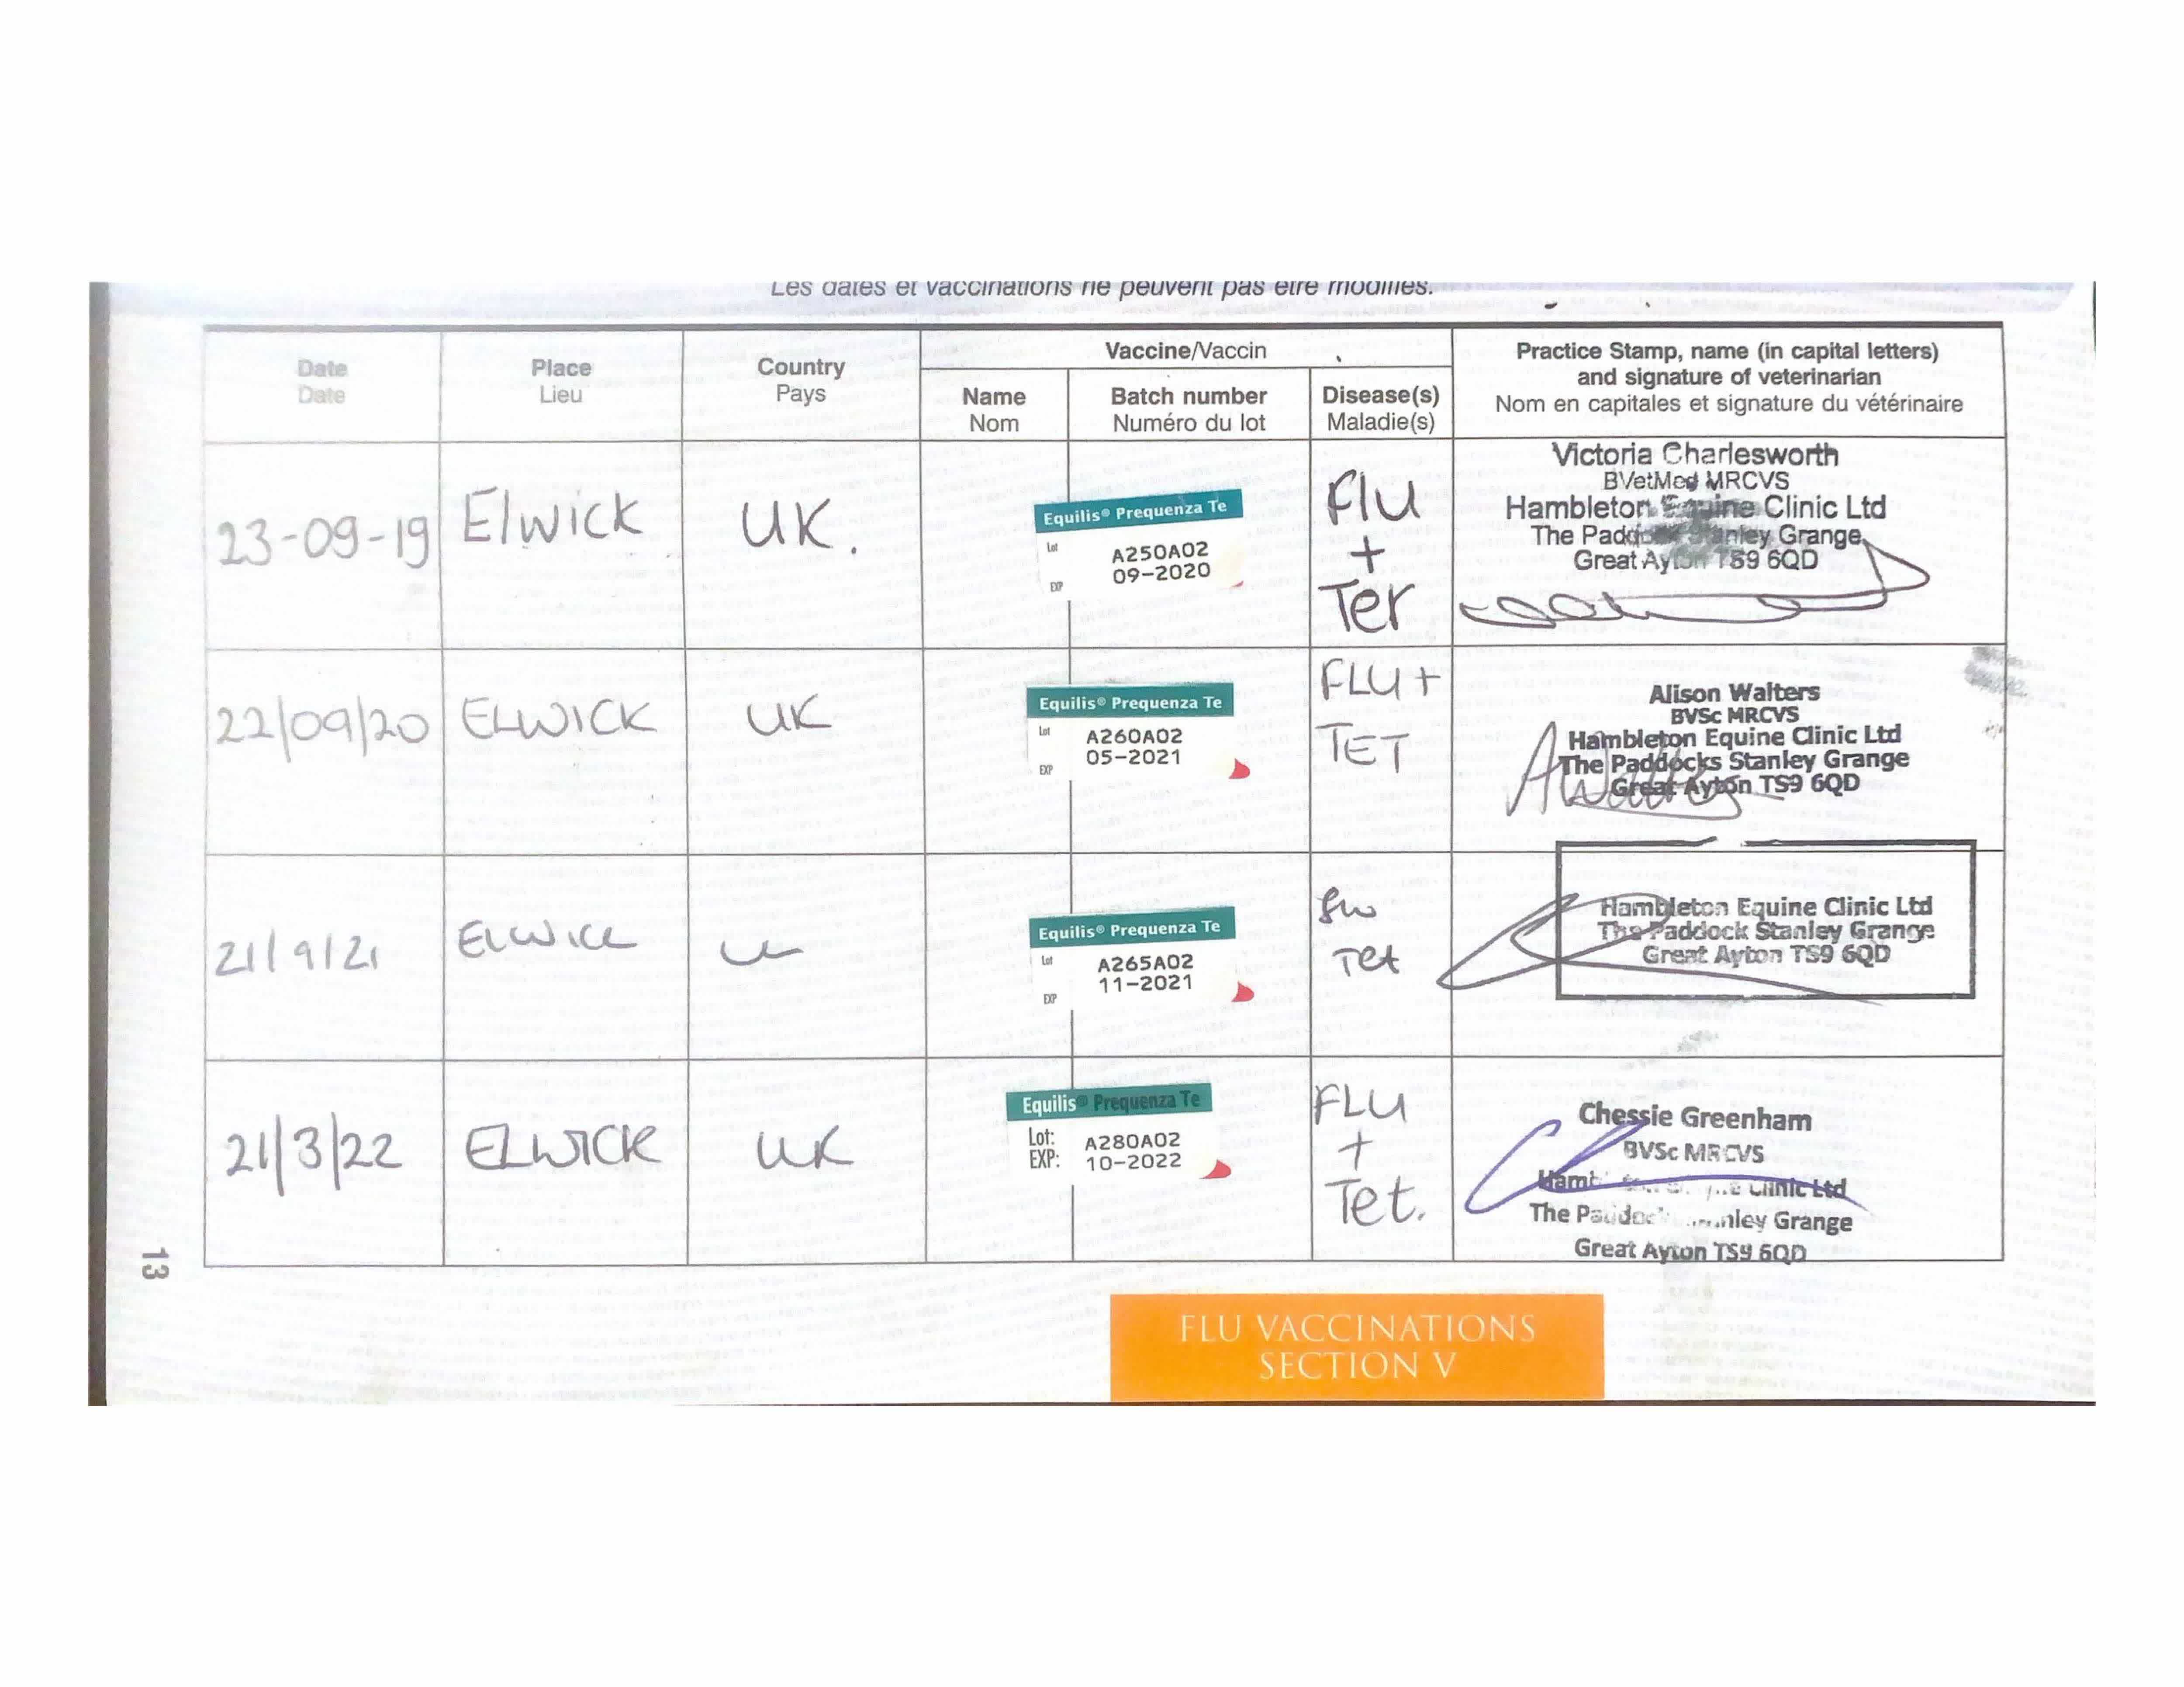 Les dates et vaccinations ne peuvent pas être modifiées.
Date
Date
Place
Lieu
Country
Pays
Vaccine/Vaccin
Name
Nom
Batch number
Numéro du lot
Disease(s)
Maladie(s)
Practice Stamp, name (in capital letters)
and signature of veterinarian
Nom en capitales et signature du vétérinaire
23-09-19
Elwick
UK.
Equilis® Prequenza Te
Lot
A250A02
EXP
09-2020
Flu
+
Ter
Victoria Charlesworth
BVetMed MRCVS
Hambleton Equine Clinic Ltd
The Paddock Stanley Grange
Great Ayton TS9 6QD
22/09/20
ELWICK
UK
Equilis® Prequenza Te
Lot
A260A02
EXP
05-2021
FLU +
TET
Alison Walters
BVSc MRCVS
Hambleton Equine Clinic Ltd
The Paddocks Stanley Grange
Great Ayton TS9 6QD
AWalters
21/9/21
ELWICK
Equilis® Prequenza Te
Lot
A265A02
EXP
11-2021
Tet
Hambleton Equine Clinic Ltd
The Paddock Stanley Grange
Great Ayton TS9 6QD
21/3/22
ELWICK
UK
Equilis® Prequenza Te
Lot: A280A02
EXP: 10-2022
FLU
+
Tet.
Chessie Greenham
BVSc MRCVS
Hambleton Equine Clinic Ltd
The Paddock Stanley Grange
Great Ayton TS9 6QD
13
FLU VACCINATIONS
SECTION V